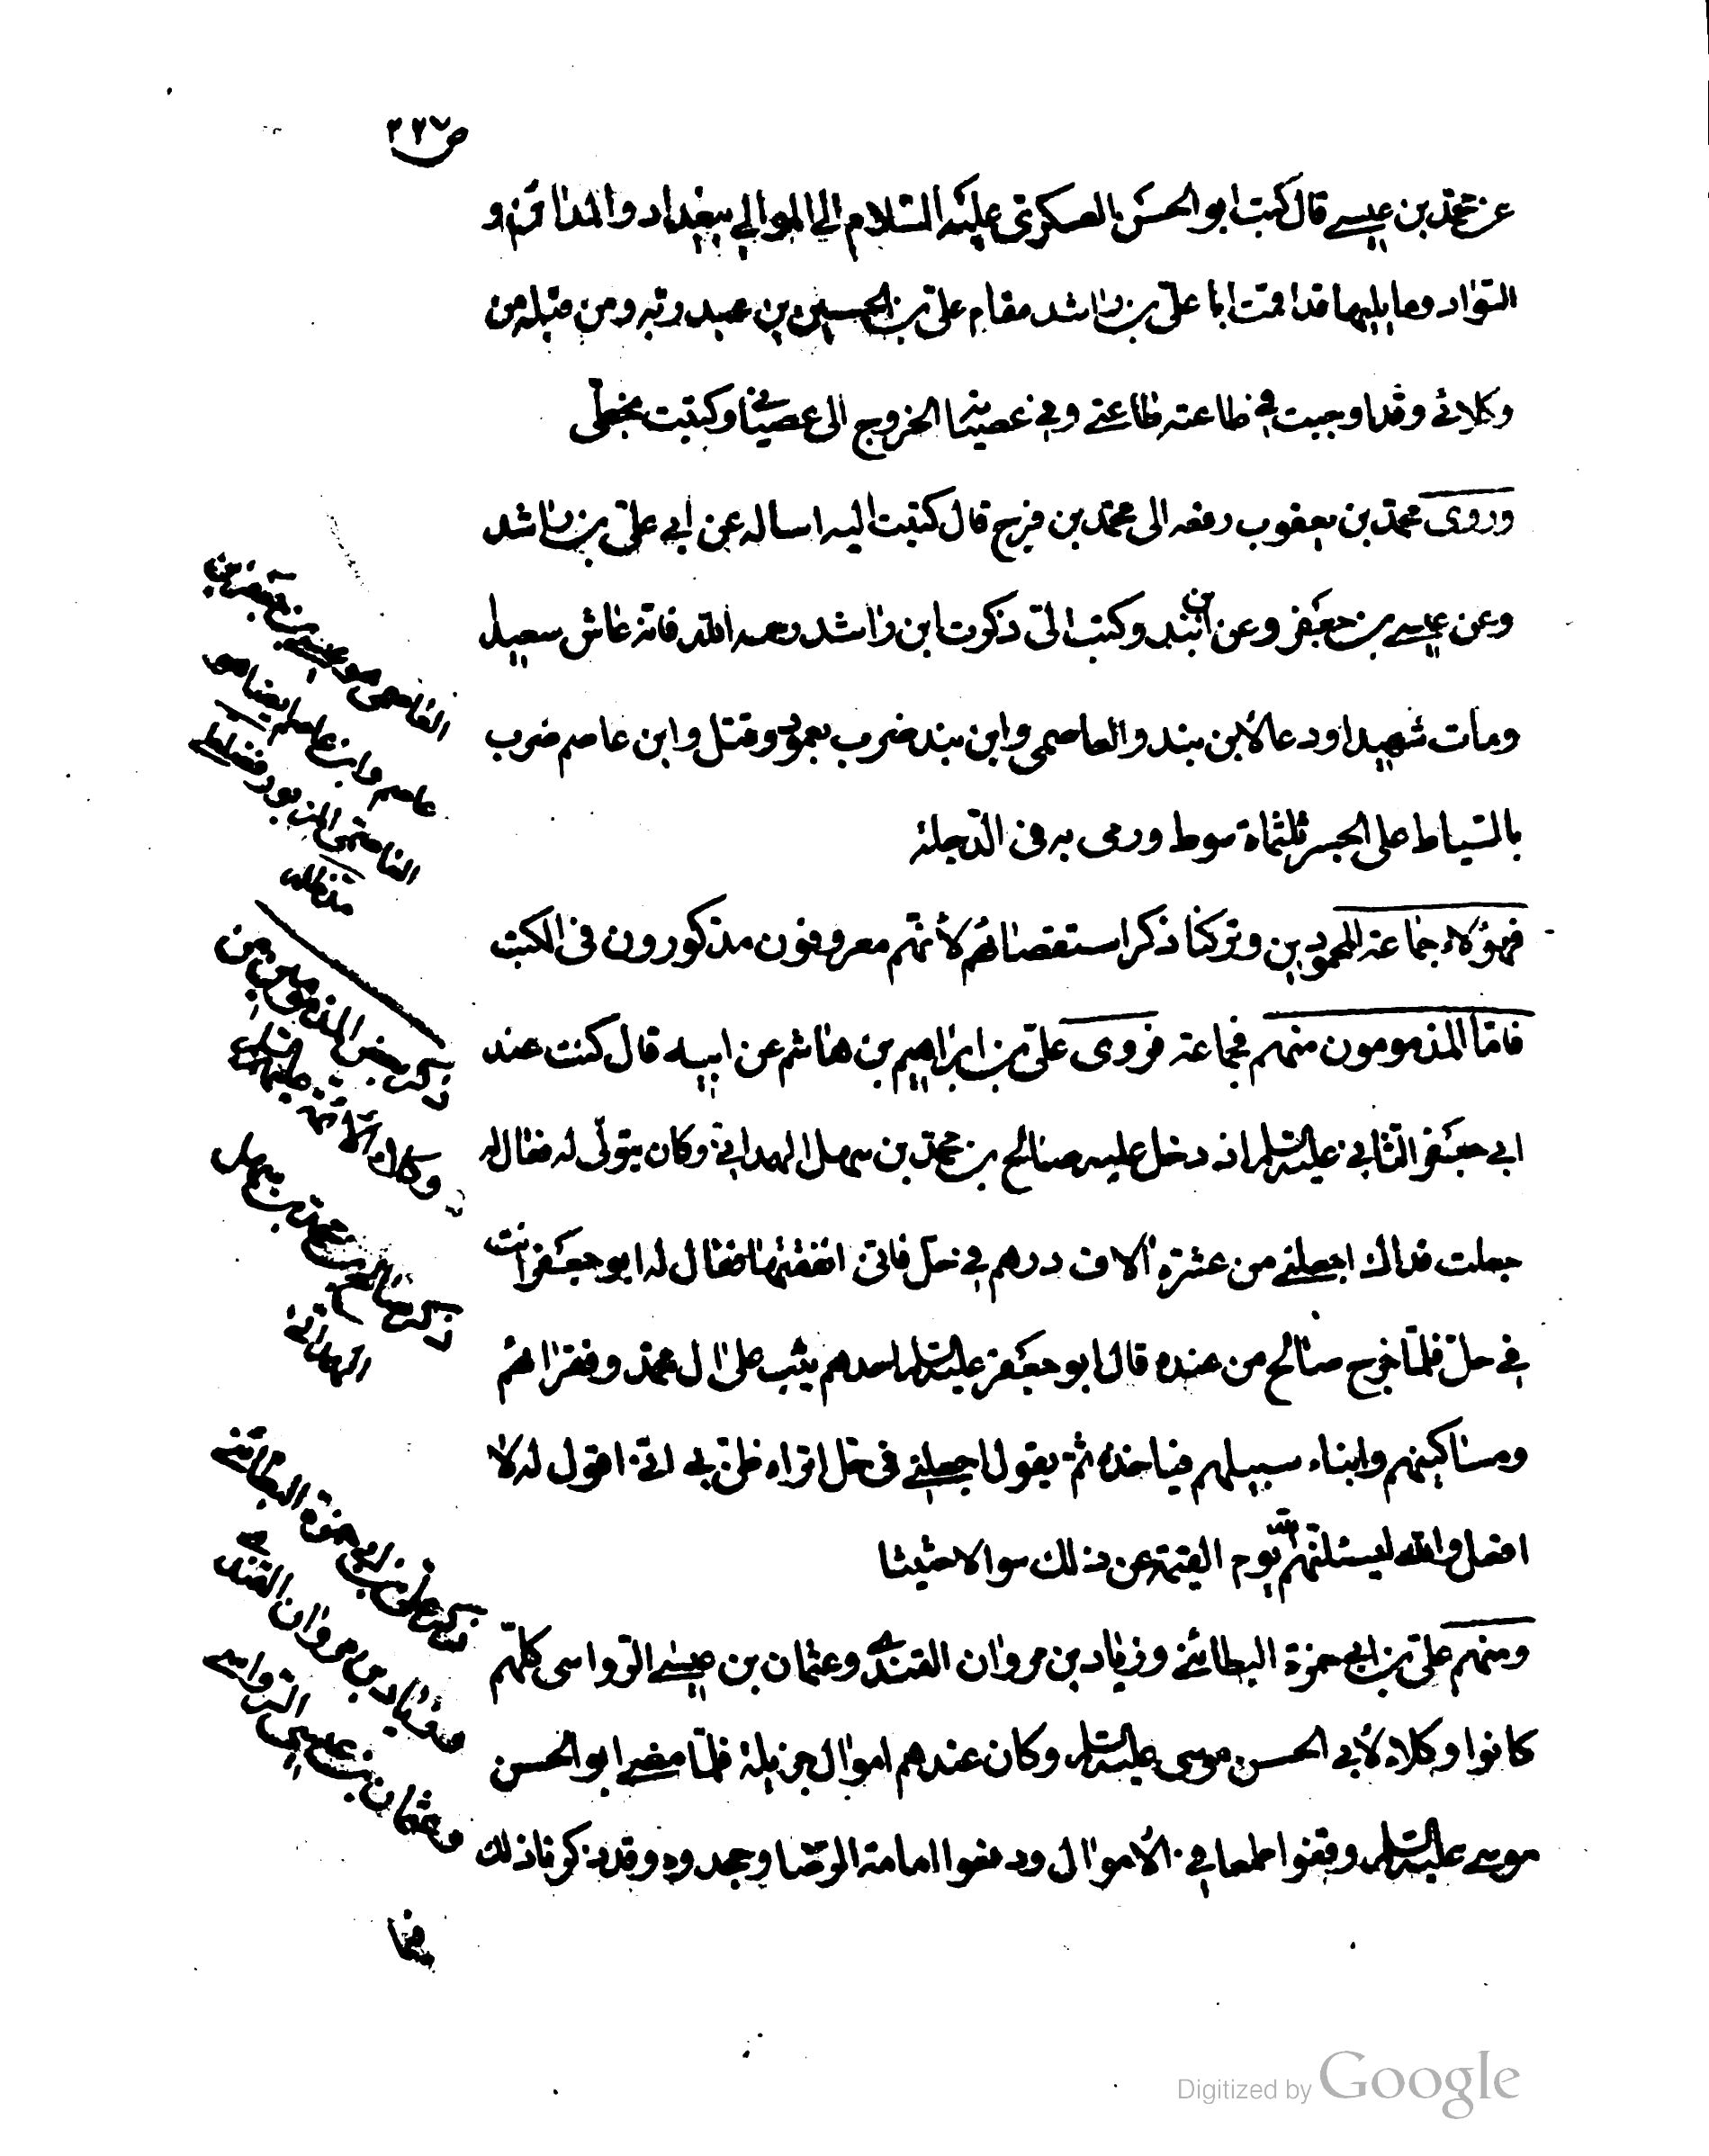 ص ٢٢٧
عن محمد بن عيسى قال كتب ابو الحسن العسكرى عليه السلام الى الموالى ببغداد والمدائن و
السواد وما يليها قد اقمت ابا على بن راشد مقام على بن الحسين بن عبد ربه ومن قبله من
وكلائى وقد اوجبت فى طاعته طاعتى وفى عصيانه الخروج الى عصيانى وكتبت بخطى
وروى محمد بن يعقوب رفعه الى محمد بن فرج قال كتبت اليه اساله عن ابى على بن راشد
وعن عيسى بن جعفر وعن ابن بند وكتب الى ذكرت ابن راشد رحمه الله فانه عاش سعيدا
ومات شهيدا ودعا لابن بند والعاصمى وابن بند ضرب بعمود وقتل وابن عاصم ضرب
بالسياط على الجسر ثلثماة سوط ورمى به فى الدجلة
فهؤلاء جماعة المحمودين وتركنا ذكر استقصائهم لأنهم معروفون مذكورون فى الكتب
فامّا المذمومون منهم فجماعة فروى على بن ابراهيم بن هاشم عن ابيه قال كنت عند
ابى جعفر الثانى عليه السلم اذ دخل عليه صالح بن محمد بن سهل الهمدانى وكان يتولى له فقال له
جعلت فداك اجعلنى من عشرة الاف درهم فى حل فانى انفقتها فقال له ابو جعفر انت
فى حل فلما خرج صالح من عنده قال ابو جعفر عليه السلم احدهم يثب على ال محمد وفقرائهم
ومساكينهم وابناء سبيلهم فياخذه ثم يقول اجعلنى فى حل اتراه ظن بى انى اقول له لا
افعل والله ليسئلنهم الله يوم القيمة عن ذلك سوالا حثيثا
ومنهم على بن ابى حمزة البطائنى وزياد بن مروان القندى وعثمان بن عيسى الرواسى كلهم
كانوا وكلاء لأبى الحسن موسى عليه السلم وكان عندهم اموال جزيلة فلما مضى ابو الحسن
موسى عليه السلم وقفوا طمعا فى الأموال ودفعوا امامة الرضا وجحدوه وقد ذكرنا ذلك
فيما
العاصمى هو عيسى بن جعفر بن
عاصم وابن عاصم ايضا هو
العاصمى المذكور
ذكر بعض المذمومين من
وكلاء الأئمة عليهم السلم
ذكر صالح بن محمد بن سهل
الهمدانى
ذكر على بن ابى حمزة البطائنى
وزياد بن مروان القندى
وعثمان بن عيسى الرواسى